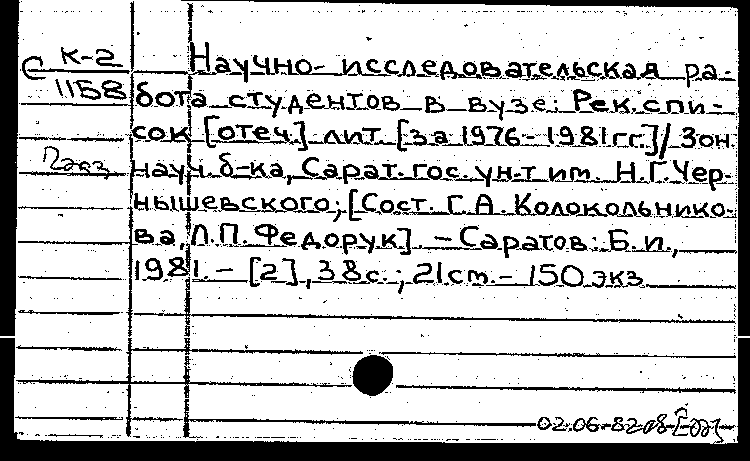 С К-2
1158
Научно-исследовательская ра-
бота студентов в вузе: Рек. спи-
сок [отеч.] лит. [за 1976-1981 гг.] / Зон.
науч. б-ка, Сарат. гос. ун-т им. Н.Г.Чер-
нышевского; [Сост. Г.А. Колокольнико-
ва, Л.П. Федорук]. – Саратов: Б.и.,
1981. – [2], 38с.; 21 cm. – 150 экз.
02.06-82